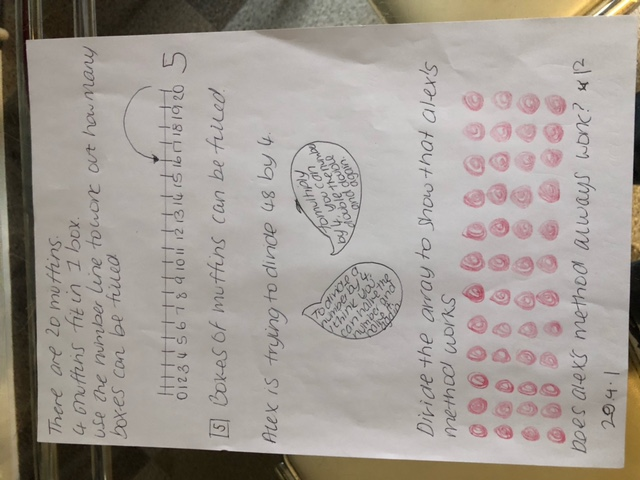 There are 20 muffins.
4 muffins fit in 1 box.
use the number line to work out how many
boxes can be filled
0 1 2 3 4 5 6 7 8 9 10 11 12 13 14 15 16 17 18 19 20 5
5 Boxes of muffins can be filled.
Alex is trying to divide 48 by 4.
To divide a
number by 4,
I think you
can halve the
number and
To multiply
by 4 you can
double
and again
Divide the array to show that alex's
method works
Does alex's method always work? 12